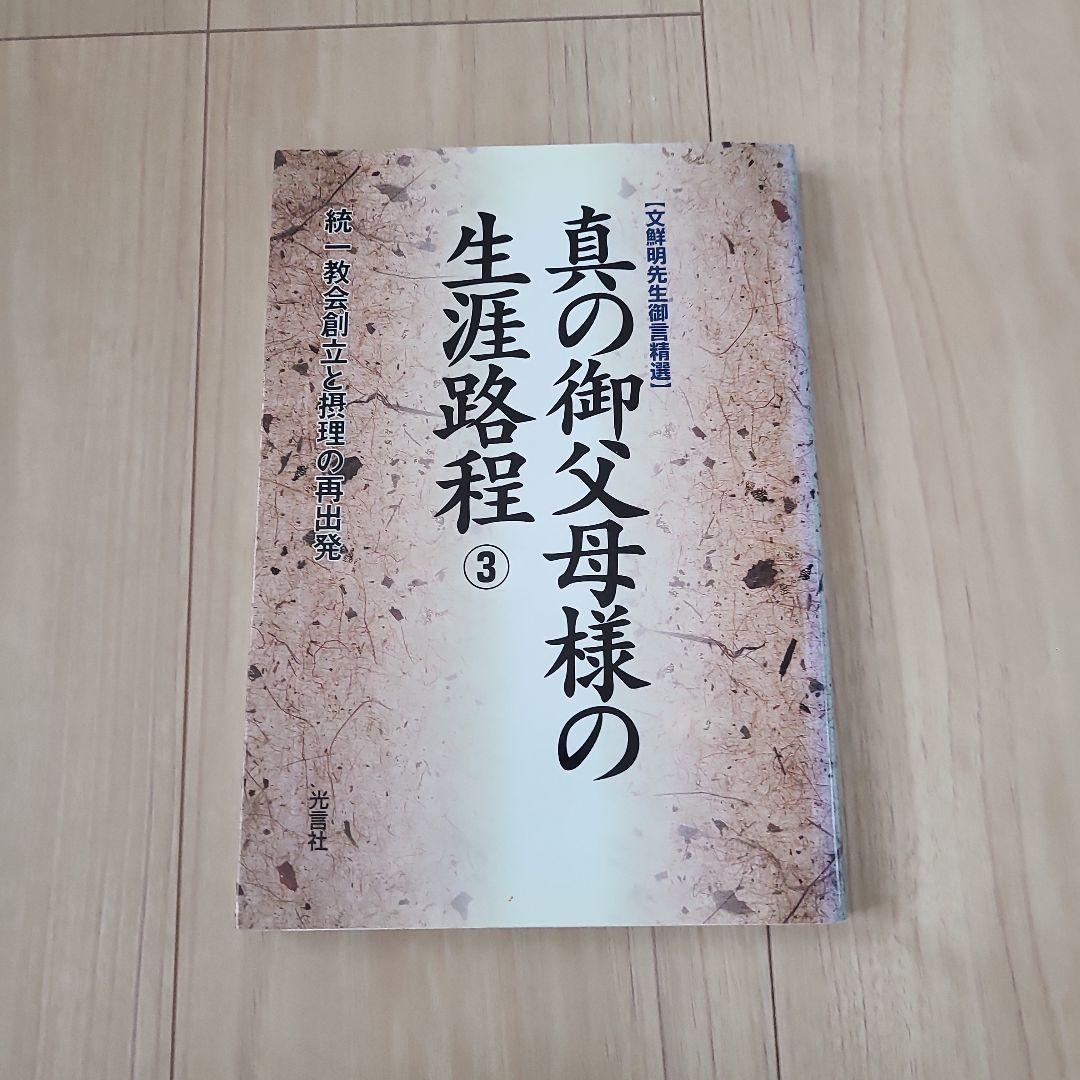 【文鮮明先生御言精選】
真の御父母様の
生涯路程③
統一教会創立と摂理の再出発
光言社